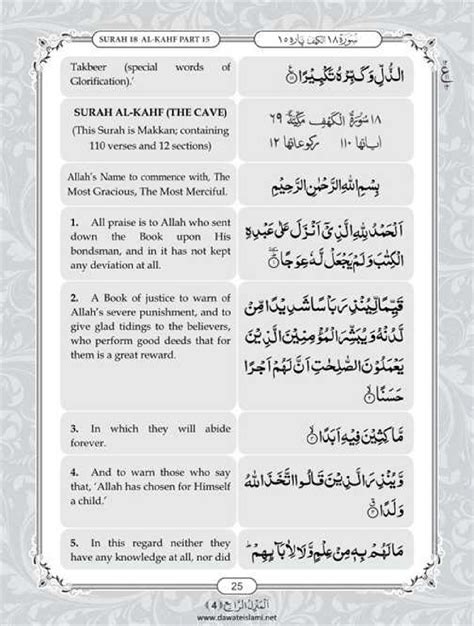 SURAH 18 AL-KAHF PART 15
سورة ١٨ الكهف پارہ ١٥
Takbeer (special words of
Glorification).’
الذُّلِّ وَكَبِّرْهُ تَكْبِيْرًا
SURAH AL-KAHF (THE CAVE)
(This Surah is Makkan; containing
110 verses and 12 sections)
١٨ سُوْرَةُ الْكَهْفِ مَكِّيَّةٌ ٦٩
اٰیاتها ١١٠ رکوعاتها ١٢
Allah’s Name to commence with, The
Most Gracious, The Most Merciful.
بِسْمِ اللهِ الرَّحْمٰنِ الرَّحِيْمِ
1. All praise is to Allah who sent
down the Book upon His
bondsman, and in it has not kept
any deviation at all.
اَلْحَمْدُ لِلّٰهِ الَّذِيْۤ اَنْزَلَ عَلٰى عَبْدِهِ
الْكِتٰبَ وَلَمْ يَجْعَلْ لَّهٗ عِوَجًا
2. A Book of justice to warn of
Allah’s severe punishment, and to
give glad tidings to the believers,
who perform good deeds that for
them is a great reward.
قَيِّمًا لِّيُنْذِرَ بَاْسًا شَدِيْدًا مِّنْ
لَّدُنْهُ وَيُبَشِّرَ الْمُؤْمِنِيْنَ الَّذِيْنَ
يَعْمَلُوْنَ الصّٰلِحٰتِ اَنَّ لَهُمْ اَجْرًا
حَسَنًا
3. In which they will abide
forever.
مَّاكِثِيْنَ فِيْهِ اَبَدًا
4. And to warn those who say
that, ‘Allah has chosen for Himself
a child.’
وَّيُنْذِرَ الَّذِيْنَ قَالُوا اتَّخَذَ اللهُ
وَلَدًا
5. In this regard neither they
have any knowledge at all, nor did
مَا لَهُمْ بِهٖ مِنْ عِلْمٍ وَّلَا لِاٰبَآىِٕهِمْ ؕ
25
اَلْمَنْزِلُ الرَّابِعُ ﴿4﴾
www.dawateislami.net